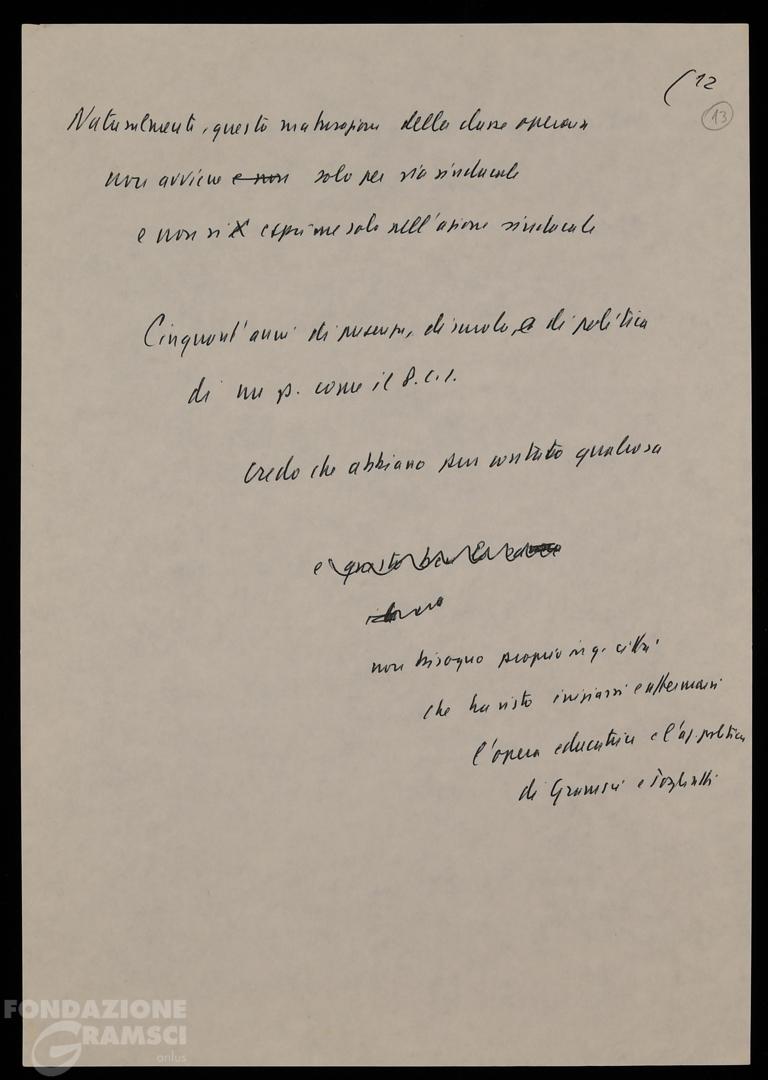 (12
13
Naturalmente, questa maturazione della classe operaia
non avviene e non solo per via sindacale
e non si esprime solo nell'azione sindacale
Cinquant'anni di presenza, di scuola, e di politica
di un p. come il P.C.I.
credo che abbiano pur contato qualcosa
e questo
non bisogno proprio in q. città
che ha visto iniziarsi e affermarsi
l'opera educatrice e l'az. politica
di Gramsci e Togliatti
FONDAZIONE
GRAMSCI
onlus